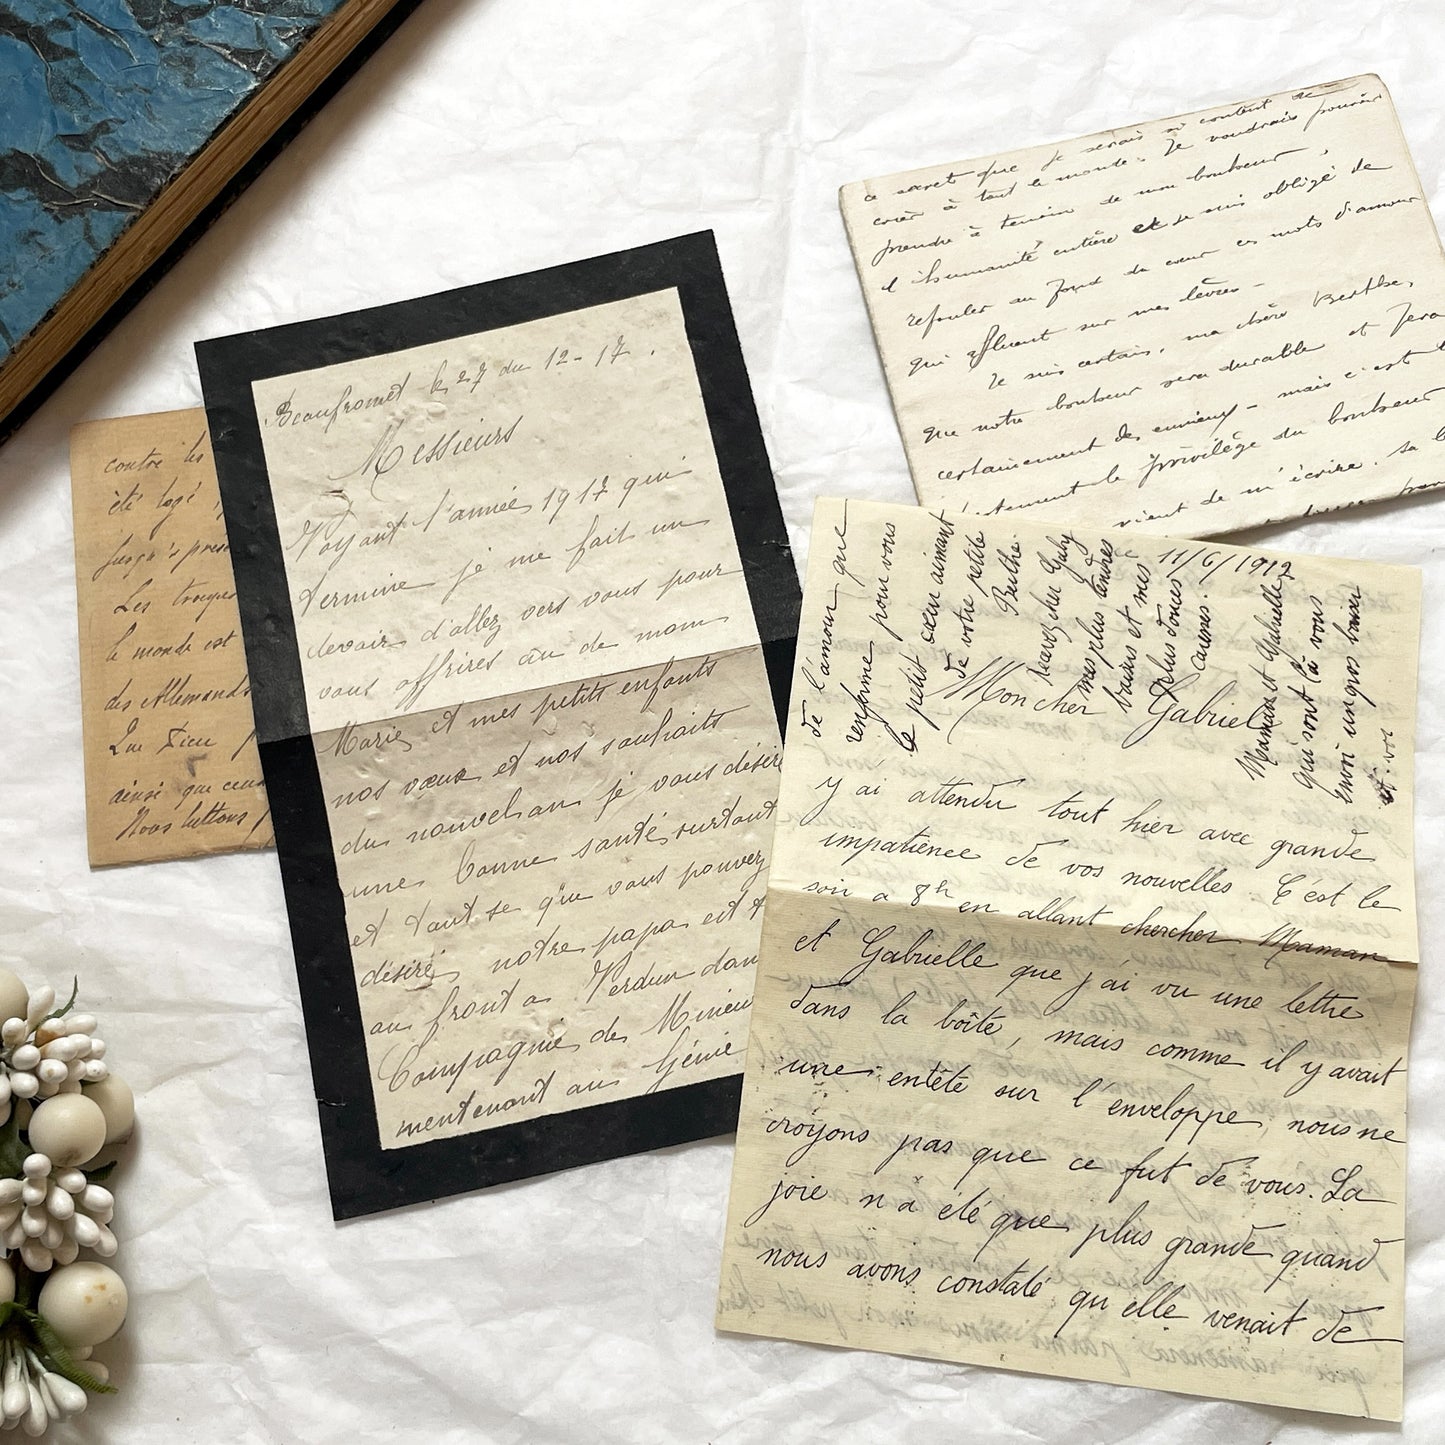 contre les
été logé
jusqu'à prese
Les troupes
le monde est
des Allemands
Que Dieu
ainsi que ceux
Nous luttons
Beaufromet le 27 du 12-17.
Messieurs
Voyant l'année 1917 qui
termine je me fait un
devoir d'allez vers vous pour
vous offrires au de nom
Marie et mes petits enfants
nos vœux et nos souhaits
du nouvel an je vous désir
une bonne santé surtout
et tant se que vous pouvez
désiré notre papa est
au front a Verdun dan
Compagnie de Mineu
mentenant au Génie
ce secret que je serais si content de
crier à tout le monde. Je voudrais pouvoir
prendre à temoin de mon bonheur,
l'humanité entière et je suis obligé de
refouler au fond du cœur ces mots d'amour
qui affluent sur mes lèvres -
Je suis certain, ma chère Berthe,
que notre bonheur sera durable et fera
certainement des envieux - mais c'est
le privilège du bonheur
vient de m'écrire. Sa
11/6/1917
de l'amour que
renferme pour vous
le petit cœur aimant
de votre petite
Berthe.
recevez cher Gaby
mes plus tendres
baisers et mes
plus douces
caresses.
Maman et Gabrielle
qui sont là vous
envoi un gros baiser
et vos
Mon cher Gabriel
y ai attendu tout hier avec grande
impatience de vos nouvelles. C'est le
soir a 8h en allant chercher Maman
et Gabrielle que j'ai vu une lettre
dans la boîte, mais comme il y avait
une entête sur l'enveloppe, nous ne
croyons pas que ce fut de vous. La
joie n'a été que plus grande quand
nous avons constaté qu'elle venait de